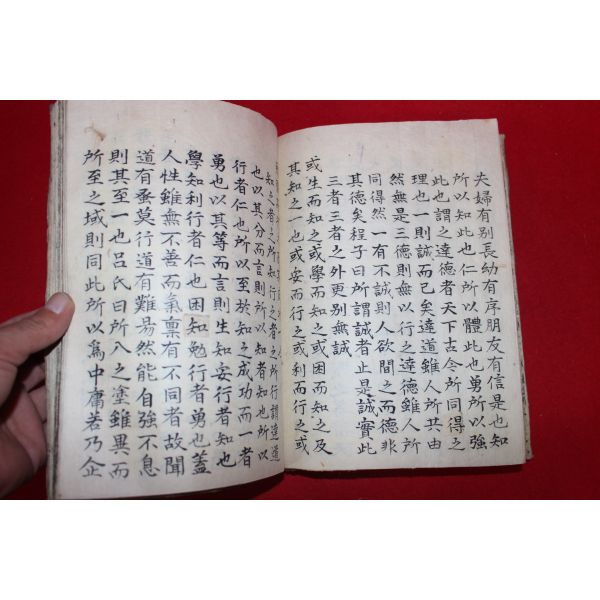 夫婦有别長幼有序朋友有信是也知
所以知此也仁所以體此也勇所以強
此也謂之達德者天下古今所同得之
理也一則誠而已矣達道雖人所共由
然無是三德則無以行之達德雖人所
同得然一有不誠則人欲間之而德非
其德矣程子曰所謂誠者止是誠實此
三者三者之外更别無誠
或生而知之或學而知之或困而知之及
其知之一也或安而行之或利而行之或
知之者之所知行之者之所行謂達道
也以其分而言則所以知者知也所以
行者仁也所以至於知之成功而一者
勇也以其等而言則生知安行者知也
學知利行者仁也困知勉行者勇也蓋
人性雖無不善而氣禀有不同者故聞
道有蚤莫行道有難易然能自強不息
則其至一也呂氏曰所入之塗雖異而
所至之域則同此所以爲中庸若乃企